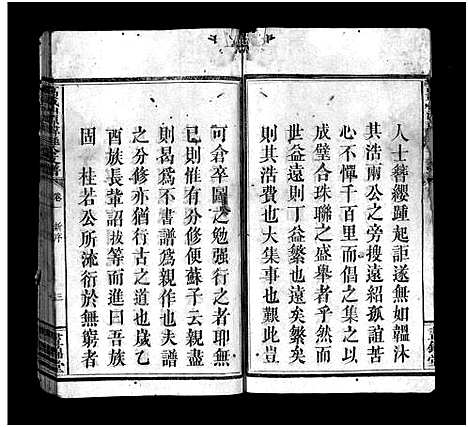 人士簪纓踵起詎遂無如韞沐
其浩兩公之旁搜遠紹孤誼苦
心不憚千百里而倡之集之以
成璧合珠聯之盛舉者乎然而
世益遠則丁益繁也丁益繁矣
則其浩費也大集事也艱此豈
可倉卒圖之勉强行之者耶無
已則惟有分修便蘇子云親盡
則曷為不書譜為親作也夫譜
之分修亦猶行古之道也歲乙
酉族長葦詔拔等而進曰吾族
固 桂若公所流衍於無窮者
卷 新序 三